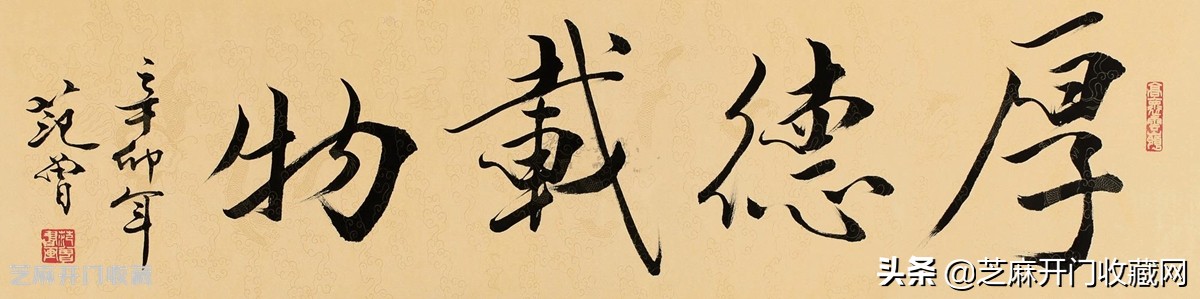 厚德載物
辛卯年
范曾
芝麻开门收藏
头条 @芝麻开门收藏网